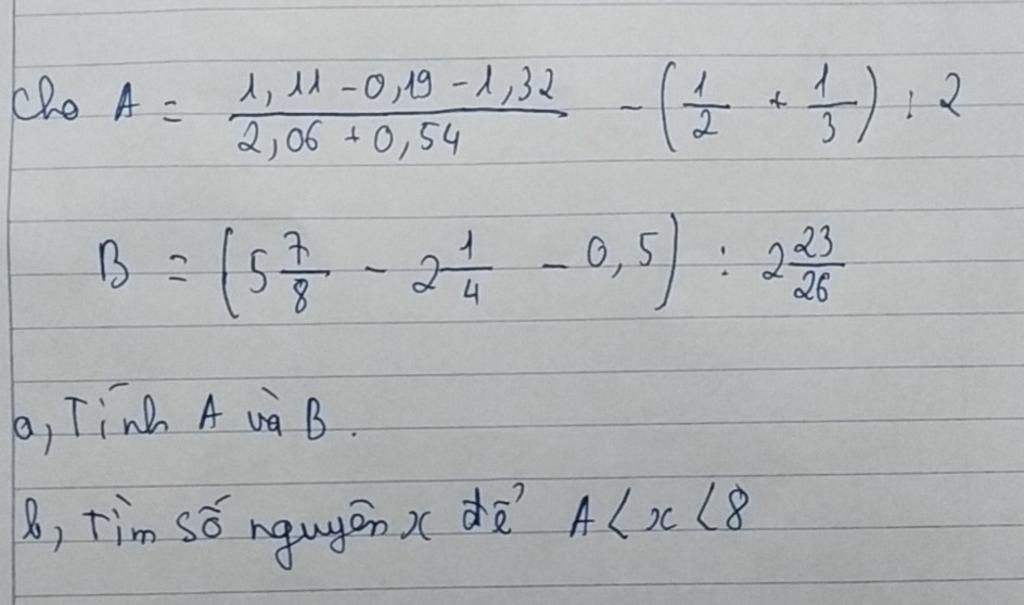 Cho A = \frac{1,11 - 0,19 - 1,32}{2,06 + 0,54} - (\frac{1}{2} + \frac{1}{3}) : 2
B = (5\frac{7}{8} - 2\frac{1}{4} - 0,5) : 2\frac{23}{26}
a, Tính A và B.
b, Tìm số nguyên x để A < x < 8